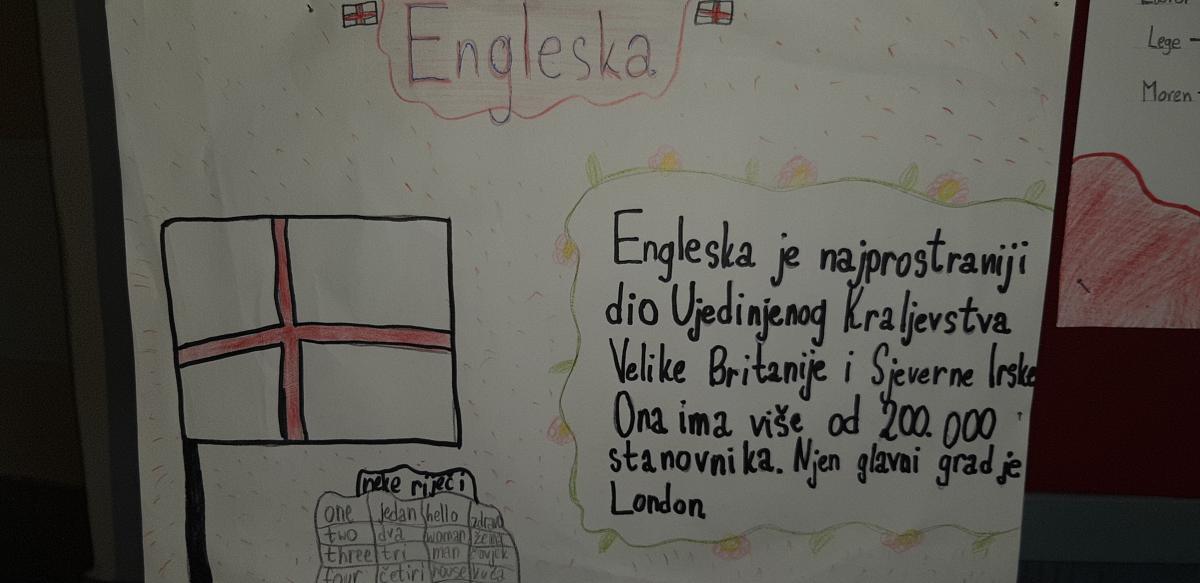 Engleska
Engleska je najprostraniji
dio Ujedinjenog Kraljevstva
Velike Britanije i Sjeverne Irske
Ona ima više od 200.000
stanovnika. Njen glavni grad je
London
neke riječi
one jedan hello zdravo
two dva woman žena
three tri man čovjek
four četiri house kuća
Lege -
Moren -